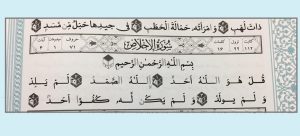 ذَاتَ لَهَبٍ وَامْرَأَتُهُ حَمَّالَةَ الْحَطَبِ فِي جِيدِهَا حَبْلٌ مِنْ مَسَدٍ
سُورَةُ الْإِخْلَاصِ
بِسْمِ اللَّهِ الرَّحْمَٰنِ الرَّحِيمِ
قُلْ هُوَ اللَّهُ أَحَدٌ اللَّهُ الصَّمَدُ لَمْ يَلِدْ
وَلَمْ يُولَدْ وَلَمْ يَكُنْ لَهُ كُفُوًا أَحَدٌ